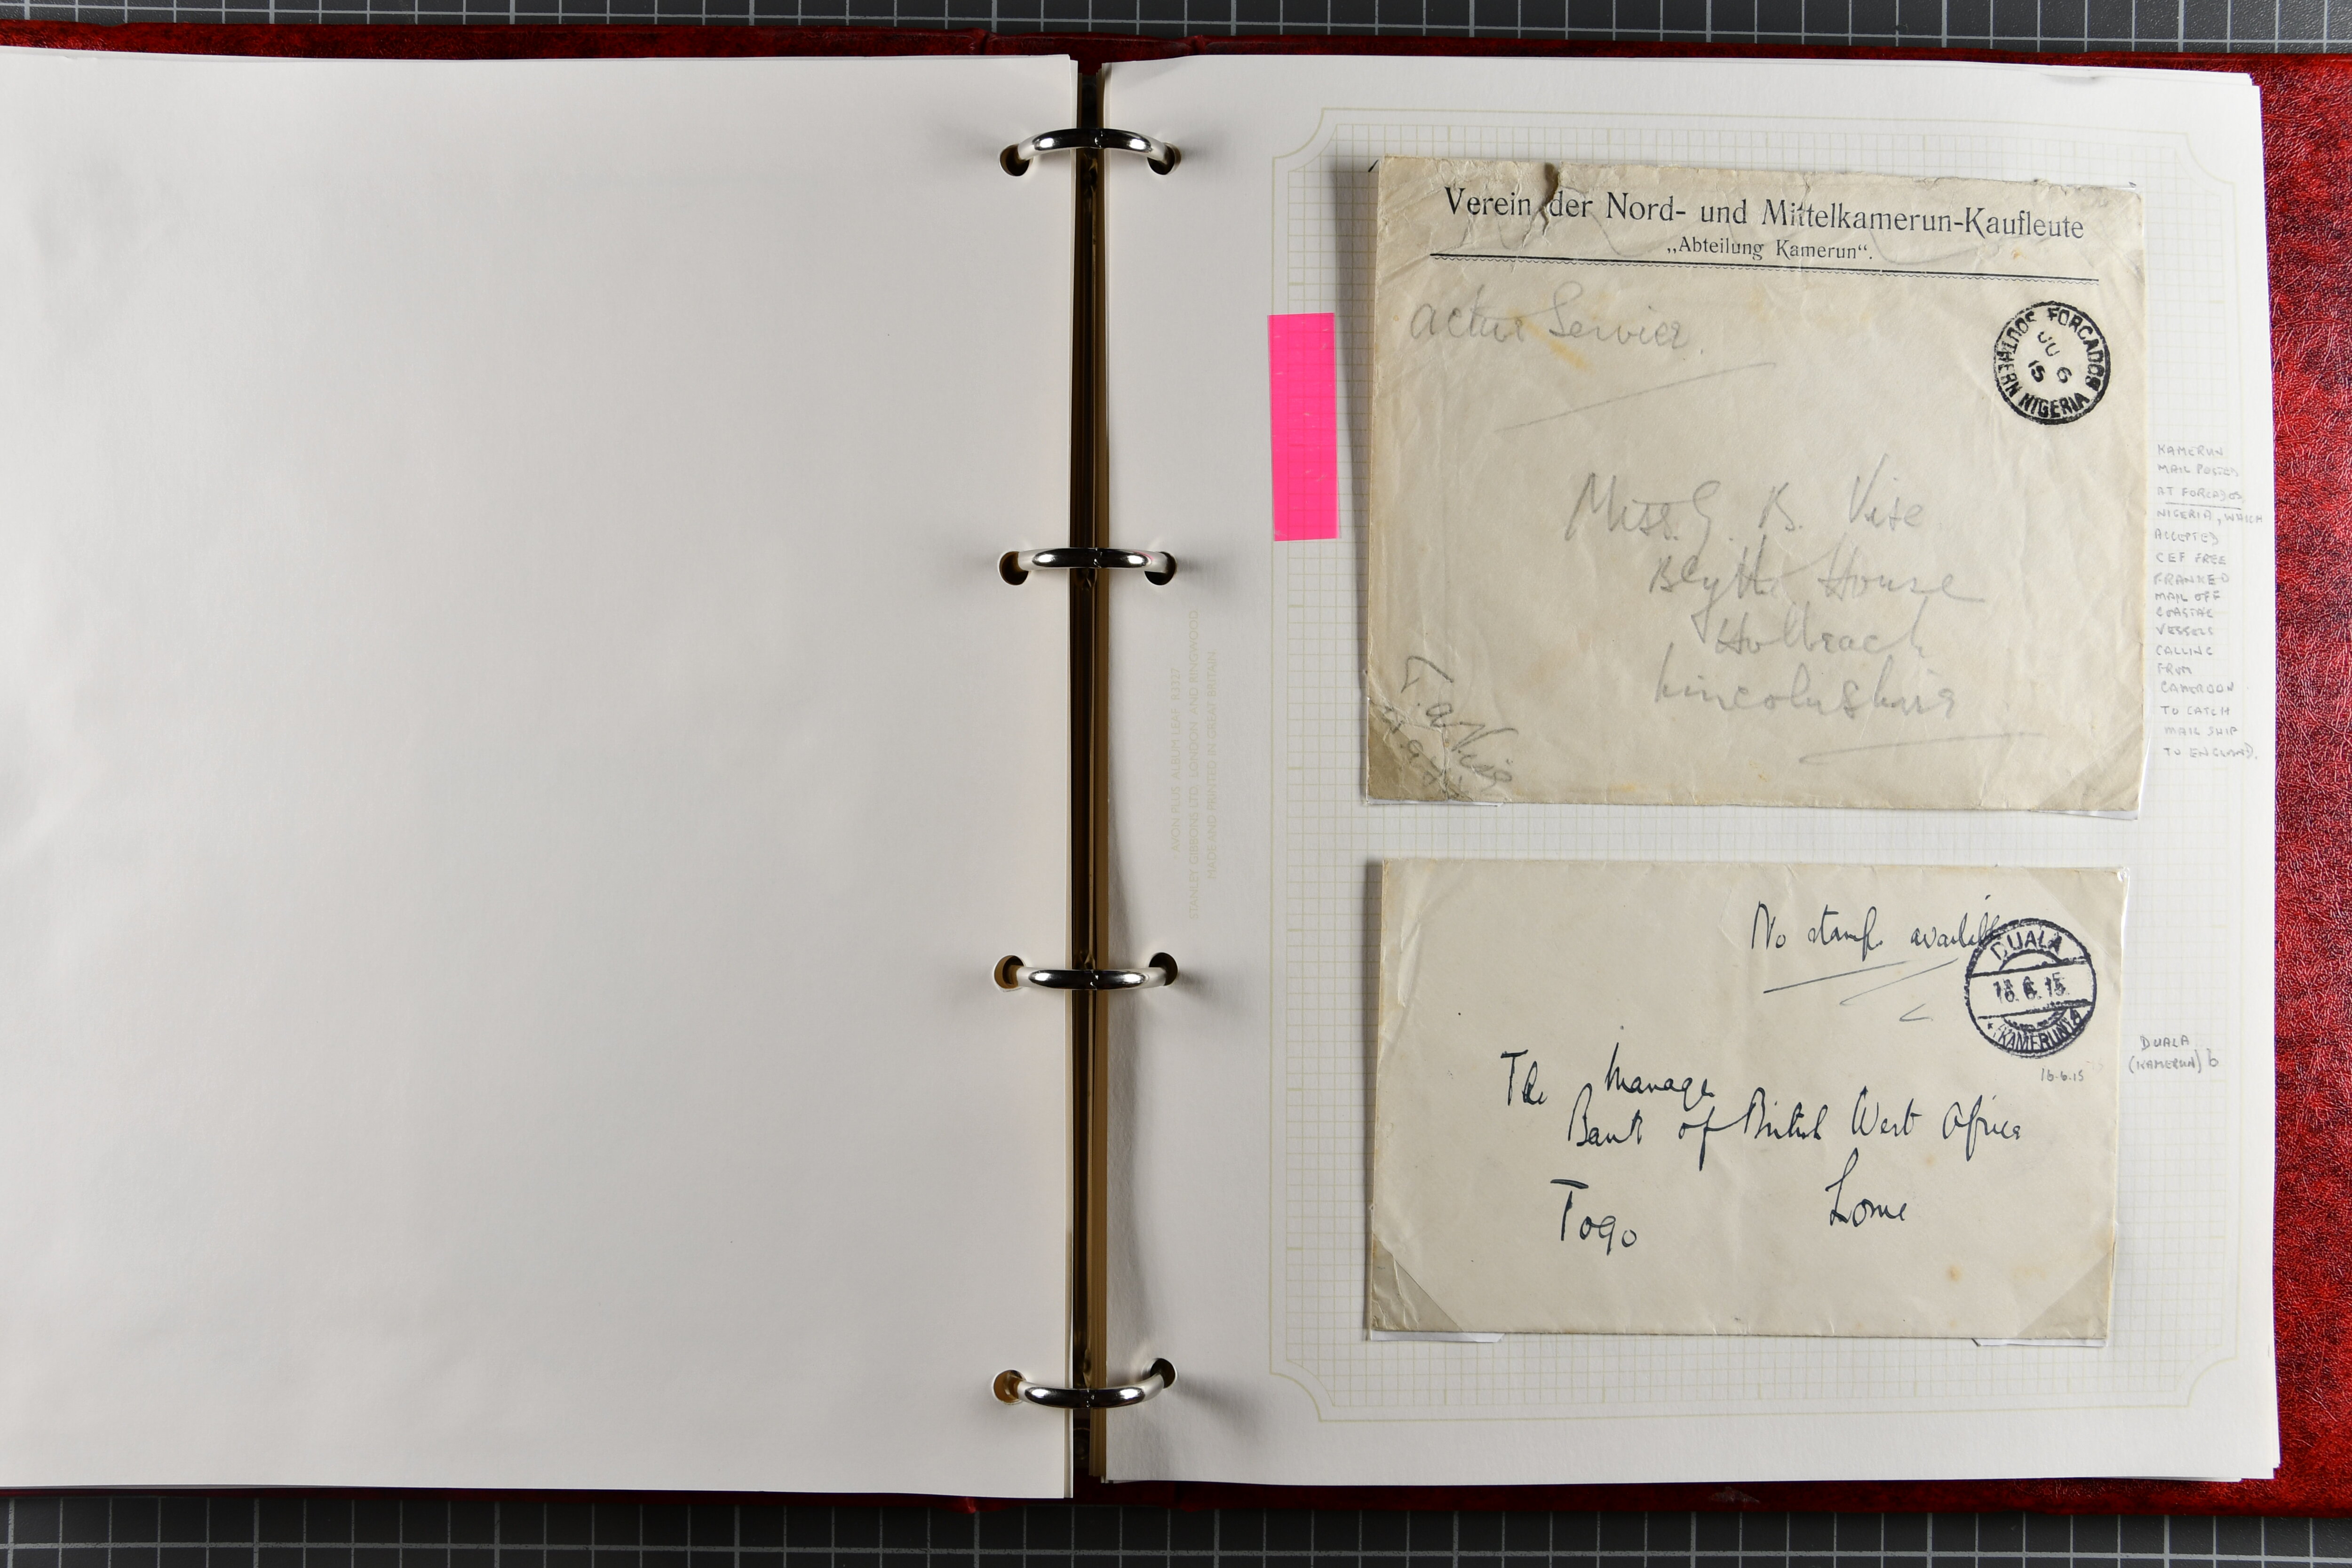 Verein der Nord- und Mittelkamerun-Kaufleute
„Abteilung Kamerun“.
Active Service.
FORCADOS
SOUTHERN NIGERIA
JU 6
15
Miss G. B. Vise
Blyth House
Holbeach
Lincolnshire
T. A. Vise
KAMERUN
MAIL POSTED
AT FORCADOS,
NIGERIA, WHICH
ACCEPTED
CEF FREE
FRANKED
MAIL OFF
COASTAL
VESSELS
CALLING
FROM
CAMEROON
TO CATCH
MAIL SHIP
TO ENGLAND.
STANLEY GIBBONS LTD. LONDON AND RINGWOOD
MADE AND PRINTED IN GREAT BRITAIN
No stamps available
DUALA
16.6.15
KAMERUN
16.6.15
DUALA
(KAMERUN) b
The Manager
Bank of British West Africa
Lome
Togo